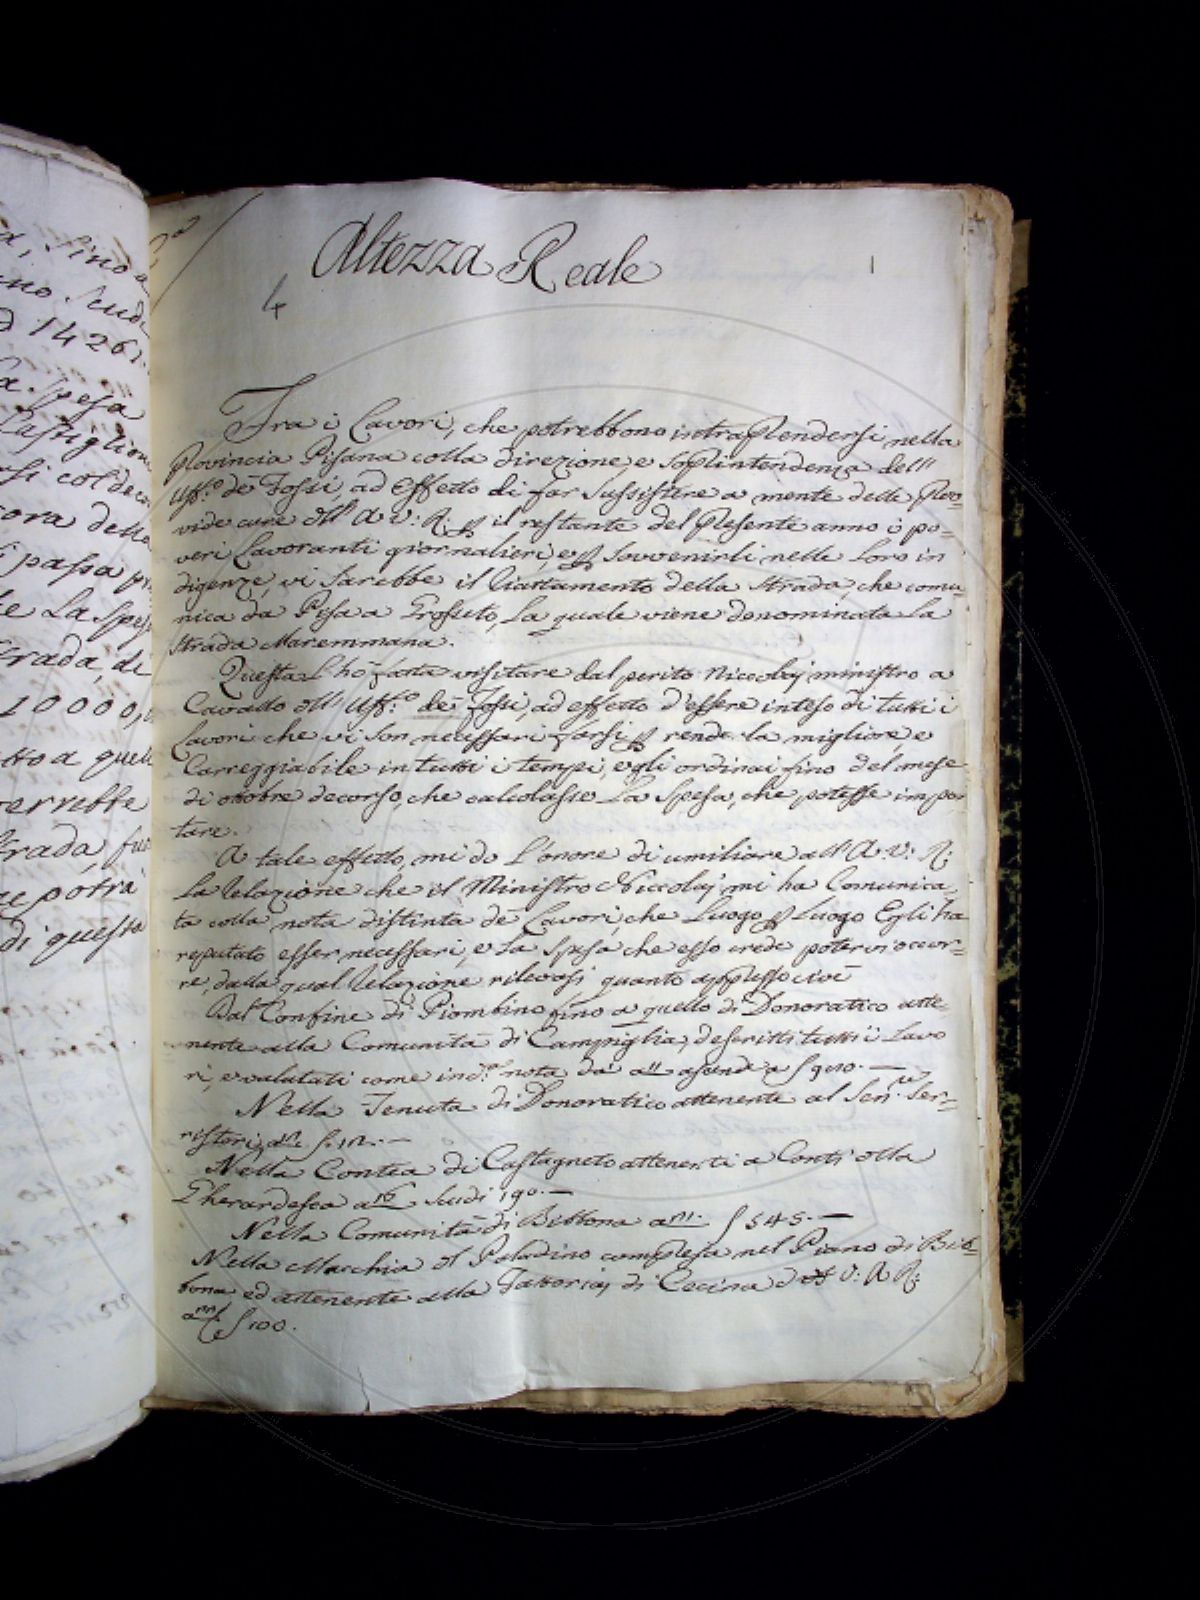 a, sino a
ino Scudi
d 1426
la spesa
Castiglion
si col deco
ora della
passa p
le La Spes
Strada, di
10000,
tto a quell
verrebbe
Strada, fu
potrà
di questa
Altezza Reale
1
4
Fra i Lavori, che potrebbono intraprendersi nella
Provincia Pisana colla direzione, e Soprintendenza dell'
Uff.o de Fossi, ad Effetto di far Sussistere a mente delle Prov-
vide cure dell' A. V: R: p il restante del presente anno i po=
veri Lavoranti giornalieri, e p Sovvenirli nelle Loro in
digenze, vi Sarebbe il Riattamento della Strada, che comu
nica da Pisa a Grosseto, La quale viene denominata La
Strada Maremmana.
Questa L'hò fatta visitare dal perito Niccolaj ministro a
Cavallo dell' Uff.o de Fossi, ad effetto d'essere inteso di tutti i
Lavori che vi Son necessari farsi p render la migliore, e
Carreggiabile in tutti i tempi, e gli ordinai fino del mese
di ottobre decorso, che calcolasse La Spesa, che potesse impor
tare.
A tale effetto, mi do L'onore di umiliare all' A. V: R:
La Relazione che il Ministro Niccolaj mi ha Comunica
ta colla nota distinta de Lavori, che Luogo p Luogo Egli ha
reputato esser necessari, e La Spesa che esso crede potervi occor-
re, dalla qual Relazione rilevasi quanto appresso cioè
Dal Confine di Piombino fino a quello di Donoratico atte-
nente alla Comunità di Campiglia, descritti tutti i Lavo
ri, e valutati come in d.a nota da
Nella Tenuta di Donoratico attenente al Sen.re Ser-
ristori
Nella Contea di Castagneto attenenti a Conti della
Gherardesca a 16 Scudi 190.—
Nella Comunità di Bibbona a ∫ 545.—
Nella Macchia del Paladino compresa nel Piano di Bib=
bona ed attenente alla Fattoria di Cecina di V: A R:
a ∫ 100.